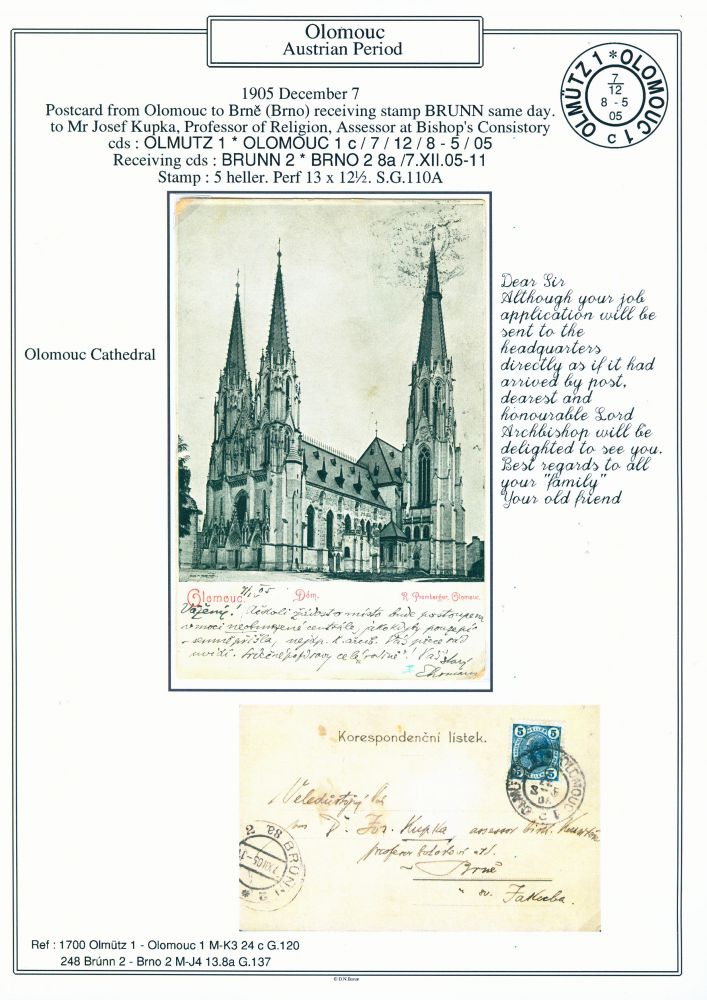 Olomouc
Austrian Period
OLMÜTZ 1 * OLOMOUC 1 c
7
12
8 - 5
05
1905 December 7
Postcard from Olomouc to Brně (Brno) receiving stamp BRUNN same day.
to Mr Josef Kupka, Professor of Religion, Assessor at Bishop's Consistory
cds : OLMUTZ 1 * OLOMOUC 1 c / 7 / 12 / 8 - 5 / 05
Receiving cds : BRUNN 2 * BRNO 2 8a /7.XII.05-11
Stamp : 5 heller. Perf 13 x 12½. S.G.110A
Olomouc Cathedral
Dear Sir
Although your job
application will be
sent to the
headquarters
directly as if it had
arrived by post,
dearest and
honourable Lord
Archbishop will be
delighted to see you.
Best regards to all
your "family"
Your old friend
Olomouc. Dóm. R. Promberger, Olomouc.
Vážený! Ačkoli žádost o místo bude postoupena
centrále, jakokdyby
přišla,
uvidí. Srdečné pozdravy celé "rodině"! Váš starý
Korespondenční lístek.
5 5
Veledůstojný Pán
Dr. Jos. Kupka, assessor bisk.
professor
Brně
sv. Jakuba.
BRÜNN 2 * 8a
7.XII.05-11
Ref : 1700 Olmütz 1 - Olomouc 1 M-K3 24 c G.120
248 Brúnn 2 - Brno 2 M-J4 13.8a G.137